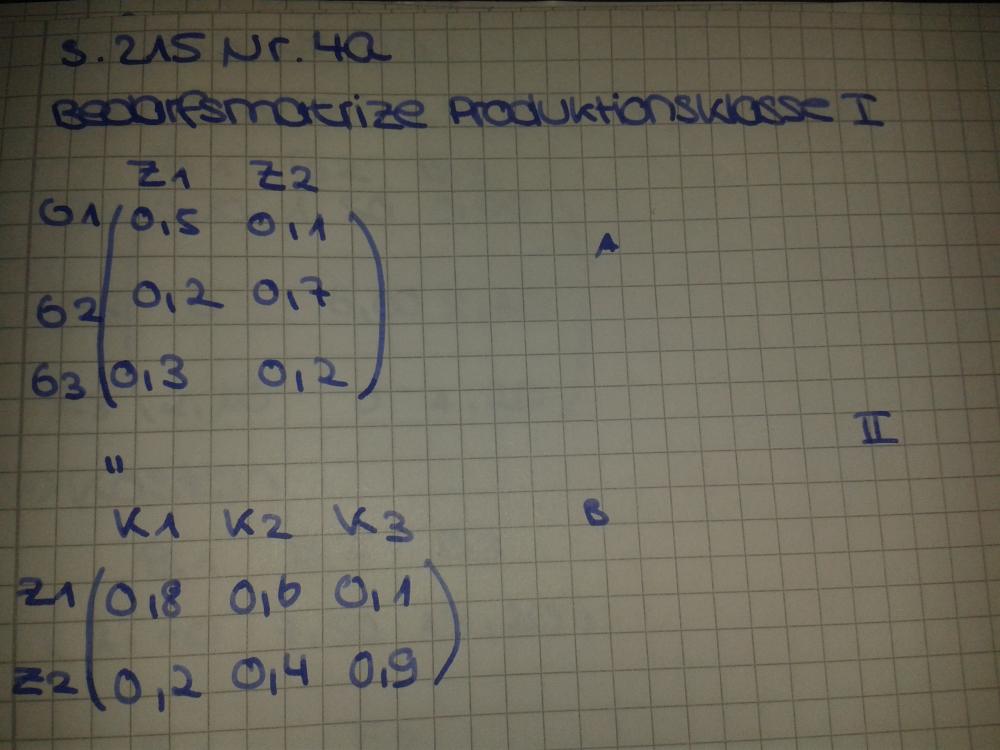 S. 215 Nr. 4a
Bedarfsmatrize Produktionsklasse I
Z1 Z2
G1 0,5 0,1
A
G2 0,2 0,7
G3 0,3 0,2
II
"
K1 K2 K3
B
Z1 0,8 0,6 0,1
Z2 0,2 0,4 0,9